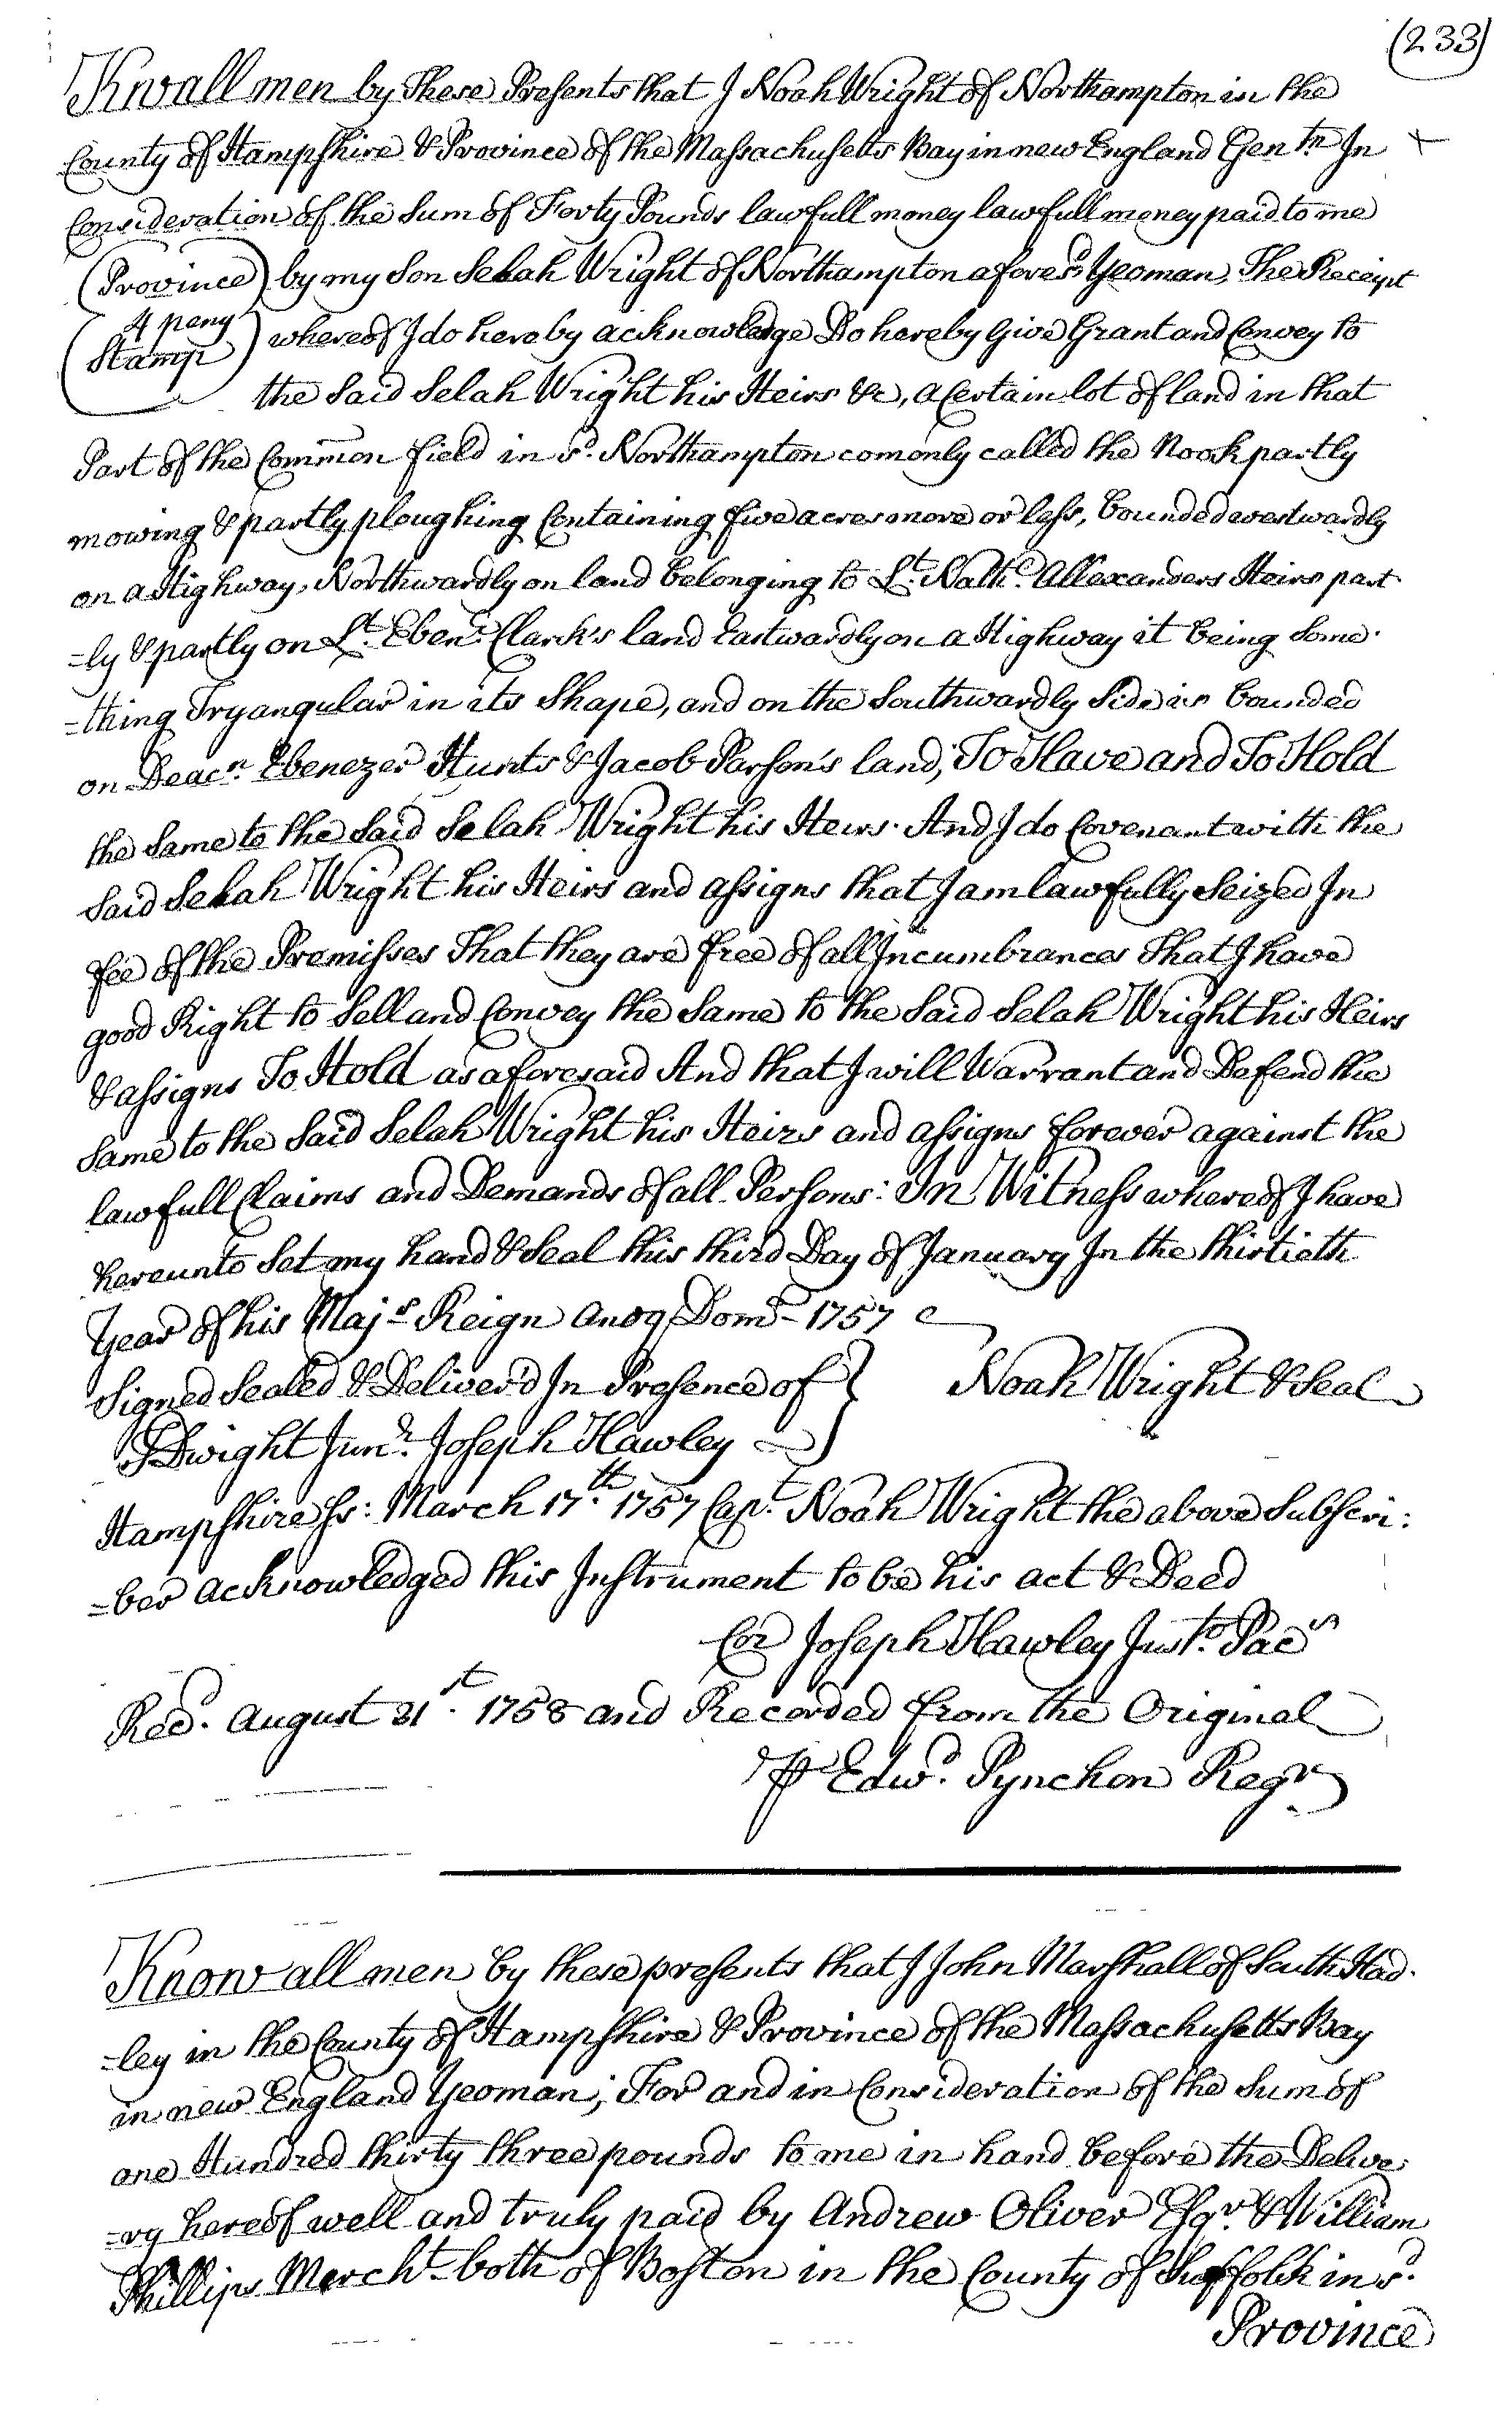 (233)
Knwall men by These Presents that I Noah Wright of Northampton in the
County of Hampshire & Province of the Massachusetts Bay in new England Gentn In
Consideration of the Sum of Forty Pounds lawfull money lawfull money paid to me
(Province) by my Son Selah Wright of Northampton aforesd Yeoman, The Receipt
(4 peny Stamp) whereof I do hereby acknowledge Do hereby Give Grant and Convey to
the Said Selah Wright his Heirs &c, a Certain lot of land in that
Part of the Common field in sd. Northampton comonly called the Nook partly
mowing & partly ploughing Containing five acres more or less, bounded westwardly
on a Highway, Northwardly on land belonging to Lt. Nathll. Allexanders Heirs part
=ly & partly on Lt. Ebenr. Clark's land Eastwardly on a Highway it being Some
=thing Tryangular in its Shape, and on the Southwardly Side is bounded
on Deacn. Ebenezer Hunts & Jacob Parson's land, To Have and To Hold
the Same to the Said Selah Wright his Heirs. And I do Covenant with the
Said Selah Wright his Heirs and assigns that I am lawfully Seized In
fee of the Premisses That they are free of all Incumbrances That I have
good Right to Sell and Convey the Same to the Said Selah Wright his Heirs
& assigns To Hold as aforesaid And that I will Warrant and Defend the
Same to the Said Selah Wright his Heirs and assigns forever against the
lawfull Claims and Demands of all Persons: In Witness whereof I have
hereunto Set my hand & Seal this third Day of January In the thirtieth
Year of his Majs Reign Anoq Domi 1757
Signed Sealed & Deliver'd In Presence of } Noah Wright & Seal
Dwight Junr. Joseph Hawley
Hampshire ss: March 17.th 1757 Capt. Noah Wright the above Subscri:
=ber acknowledged this Instrument to be his act & Deed
Cor Joseph Hawley Justo. Pacs
Recd. August 31st. 1758 and Recorded from the Original
P Edwd. Pynchon Regr
Know all men by these presents that I John Marshall of South Had
=ley in the County of Hampshire & Province of the Massachusetts Bay
in new England Yeoman; For and in Consideration of the Sum of
one Hundred thirty three pounds to me in hand before the Delive
=ry hereof well and truly paid by Andrew Oliver Esqr. & William
Phillips Mercht. both of Boston in the County of Suffolk in sd.
Province